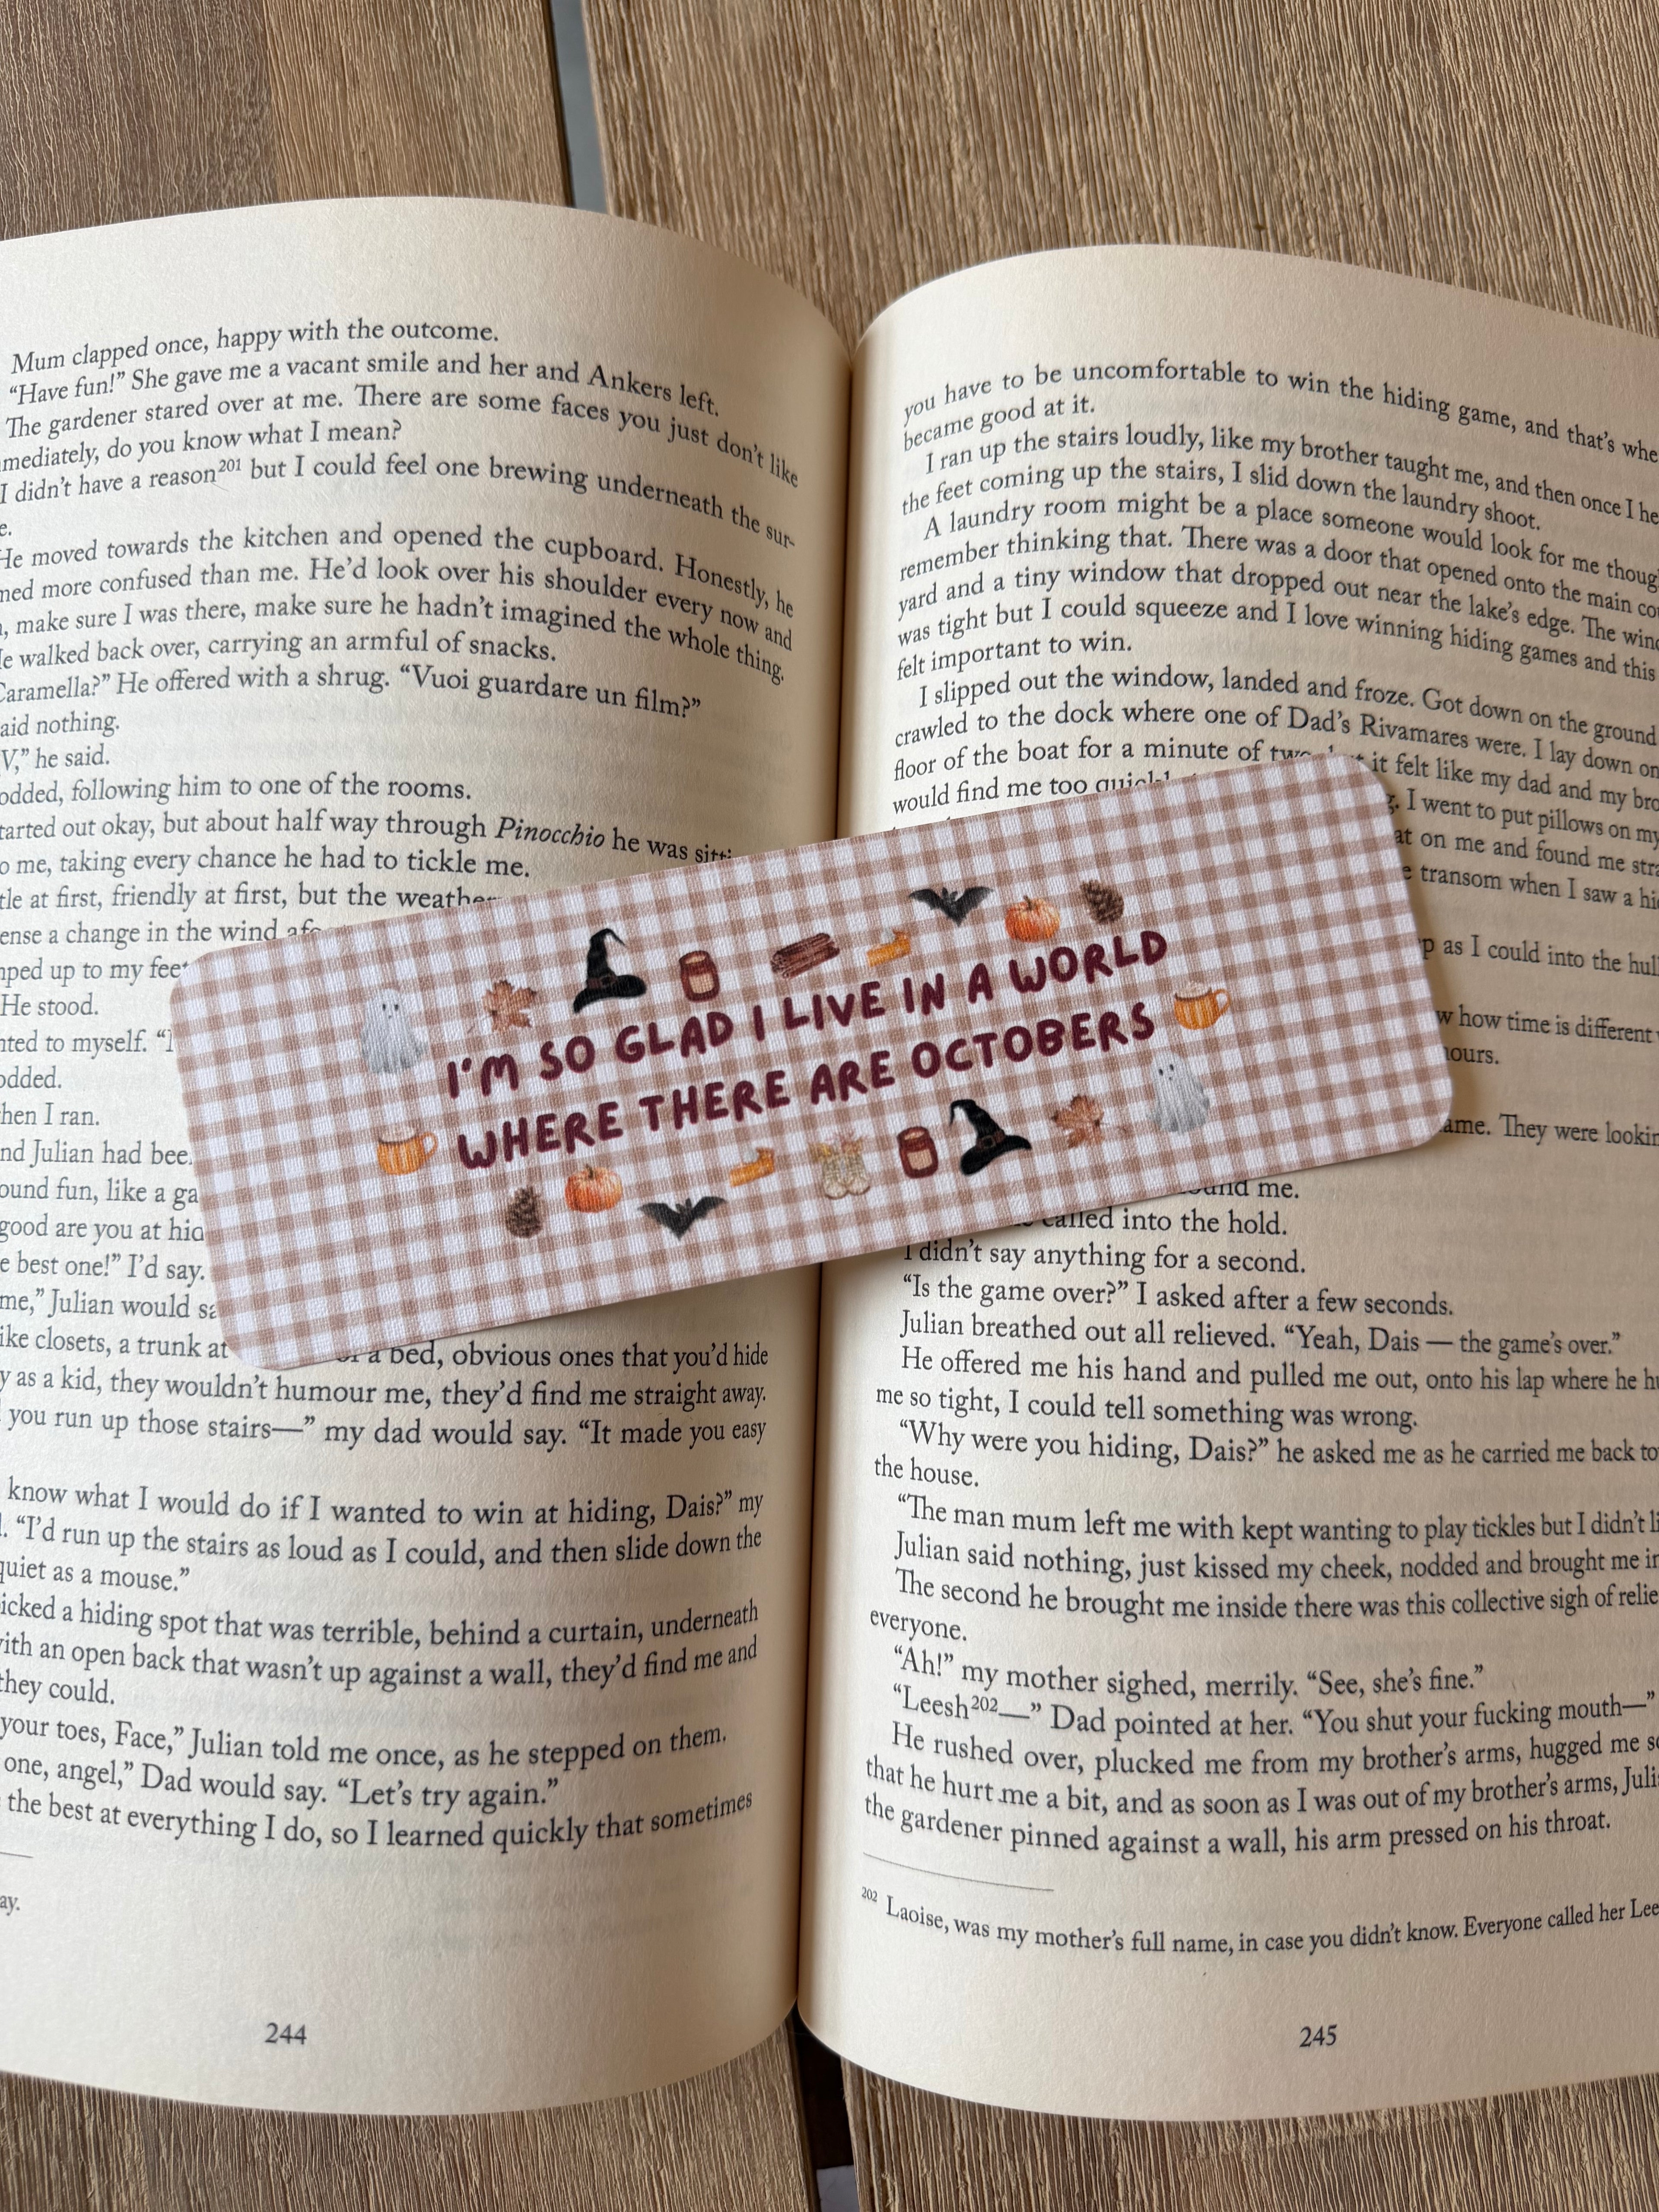 Mum clapped once, happy with the outcome.
“Have fun!” She gave me a vacant smile and her and Ankers left.
The gardener stared over at me. There are some faces you just don’t like
mediately, do you know what I mean?
I didn’t have a reason²⁰¹ but I could feel one brewing underneath the sur-
e.
He moved towards the kitchen and opened the cupboard. Honestly, he
med more confused than me. He’d look over his shoulder every now and
, make sure I was there, make sure he hadn’t imagined the whole thing.
He walked back over, carrying an armful of snacks.
Caramella?” He offered with a shrug. “Vuoi guardare un film?”
aid nothing.
V,” he said.
odded, following him to one of the rooms.
tarted out okay, but about half way through Pinocchio he was
o me, taking every chance he had to tickle me.
tle at first, friendly at first, but the
ense a change in the wind
ped up to my feet
He stood.
ted to myself.
odded.
hen I ran.
nd Julian had bee
ound fun, like a ga
good are you at hid
e best one!” I’d say.
me,” Julian would
ike closets, a trunk at
a bed, obvious ones that you’d hide
y as a kid, they wouldn’t humour me, they’d find me straight away.
you run up those stairs—” my dad would say. “It made you easy
know what I would do if I wanted to win at hiding, Dais?” my
. “I’d run up the stairs as loud as I could, and then slide down the
quiet as a mouse.”
icked a hiding spot that was terrible, behind a curtain, underneath
with an open back that wasn’t up against a wall, they’d find me and
they could.
your toes, Face,” Julian told me once, as he stepped on them.
one, angel,” Dad would say. “Let’s try again.”
the best at everything I do, so I learned quickly that sometimes
ay.
244
I’M SO GLAD I LIVE IN A WORLD
WHERE THERE ARE OCTOBERS
you have to be uncomfortable to win the hiding game, and that’s whe
became good at it.
I ran up the stairs loudly, like my brother taught me, and then once I he
the feet coming up the stairs, I slid down the laundry shoot.
A laundry room might be a place someone would look for me thoug
remember thinking that. There was a door that opened onto the main co
yard and a tiny window that dropped out near the lake’s edge. The wind
was tight but I could squeeze and I love winning hiding games and this
felt important to win.
I slipped out the window, landed and froze. Got down on the ground
crawled to the dock where one of Dad’s Rivamares were. I lay down on
floor of the boat for a minute of two it felt like my dad and my bro
would find me too I went to put pillows on my
at on me and found me stra
transom when I saw a hi
p as I could into the hull
w how time is different
hours.
ame. They were lookin
me.
called into the hold.
I didn’t say anything for a second.
“Is the game over?” I asked after a few seconds.
Julian breathed out all relieved. “Yeah, Dais — the game’s over.”
He offered me his hand and pulled me out, onto his lap where he hu
me so tight, I could tell something was wrong.
“Why were you hiding, Dais?” he asked me as he carried me back to
the house.
“The man mum left me with kept wanting to play tickles but I didn’t li
Julian said nothing, just kissed my cheek, nodded and brought me in
The second he brought me inside there was this collective sigh of relie
everyone.
“Ah!” my mother sighed, merrily. “See, she’s fine.”
“Leesh²⁰²—” Dad pointed at her. “You shut your fucking mouth—”
He rushed over, plucked me from my brother’s arms, hugged me so
that he hurt me a bit, and as soon as I was out of my brother’s arms, Juli
the gardener pinned against a wall, his arm pressed on his throat.
²⁰² Laoise, was my mother’s full name, in case you didn’t know. Everyone called her Lee
245